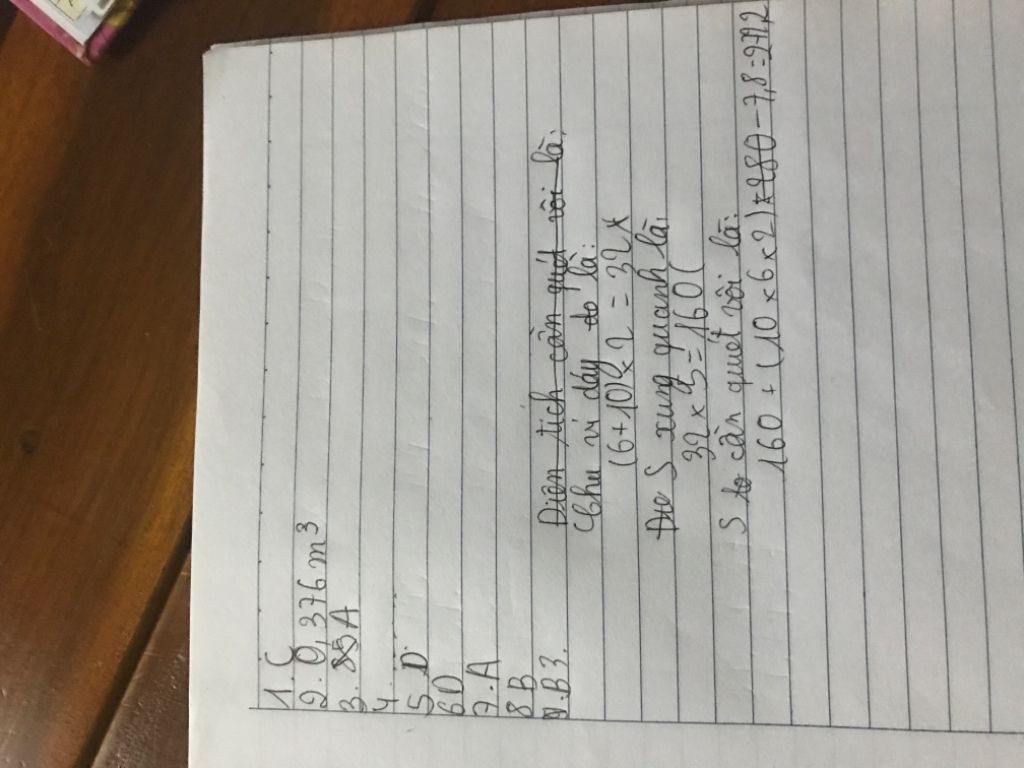 1. C
2. 0,376 m³
3. 85 A
4
5. D.
6 D
7. A
8 B
9. B 3.
Diện tích cần quét vôi là:
Chu vi đáy to là:
(6+10) × 2 = 32
S xung quanh là:
32 × 5 = 160 (
S to cần quét vôi là:
160 + (10 × 6 × 2) = 280 - 7,8 = 272,2